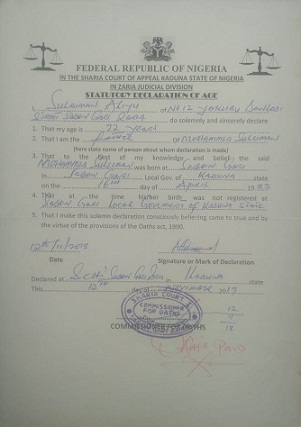 FEDERAL REPUBLIC OF NIGERIA
IN THE SHARIA COURT OF APPEAL KADUNA STATE OF NIGERIA
IN ZARIA JUDICIAL DIVISION
STATUTORY DECLARATION OF AGE
I, Suleiman Aliyu of
Sabon Gari Zaria do solemnly and sincerely declare
1. That my age is 72 years
2. That I am the of Mohammed Suleiman
(here state name of person about whom declaration is made)
3. That to the best of my knowledge and belief the said
Mohammed Suleiman was born at Sabon Gari
in Sabon Gari Local Gov. of Kaduna state
on the 16th day of April
4. That at the time his/her birth was not registered at
Sabon Gari Local Government of Kaduna State
5. That I make this solemn declaration consciously believing same to true and by
the virtue of the provisions of the Oaths act, 1990.
Date Signature or Mark of Declaration
Declared at Kaduna state
This 12th day of
SHARIA COURT
COMMISSIONER
FOR OATHS
COMMISSIONER FOR OATHS
PAID